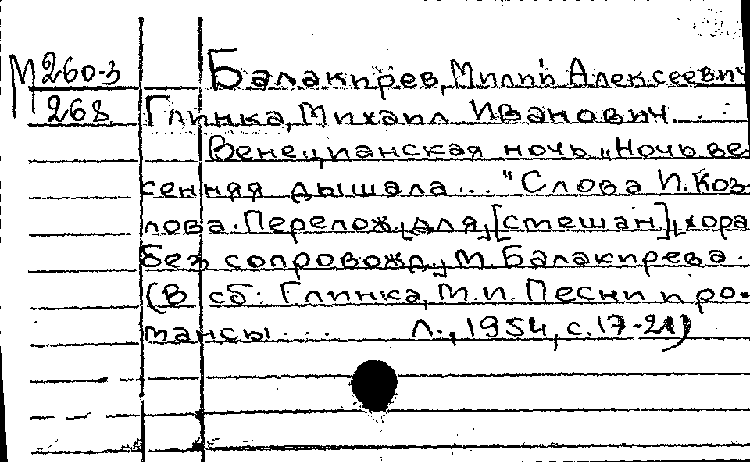 М 260-3 Балакирев, Милий Алексеевич
268 Глинка, Михаил Иванович...:
Венецианская ночь „Ночь ве-
сенняя дышала..." Слова И. Коз-
лова. Перелож. для [смешан] хора
без сопровожд. М. Балакирева.
(В сб: Глинка, М.И. Песни и ро-
мансы... Л., 1954, с. 17-21)